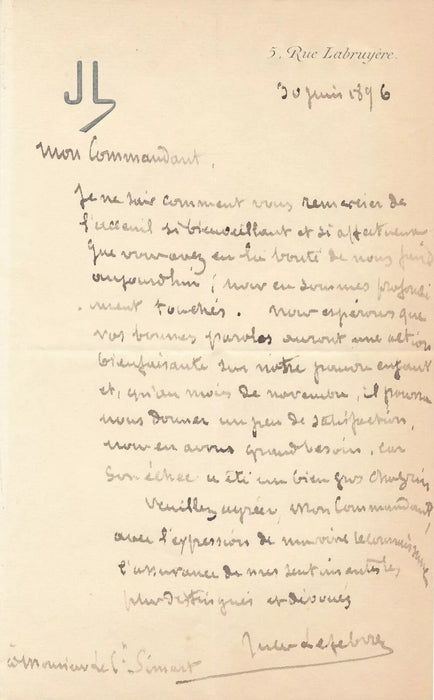 5, Rue Labruyère.
JL
30 juin 1896
Mon Commandant,
Je ne sais comment vous remercier de
l'accueil si bienveillant et si affectueux
que vous avez eu la bonté de nous faire
aujourd'hui ; nous en sommes profondé
-ment touchés. Nous espérons que
vos bonnes paroles auront une action
bienfaisante sur notre pauvre enfant
et, qu'au mois de novembre, il pourra
nous donner un peu de satisfaction,
nous en avons grand besoin, car
son échec a été un bien gros chagrin
Veuillez agréer, Mon Commandant,
avec l'expression de ma vive reconnaissance
l'assurance de mes sentiments les
plus distingués et dévoués
Jules Lefebvre
à Monsieur le Ct Simart